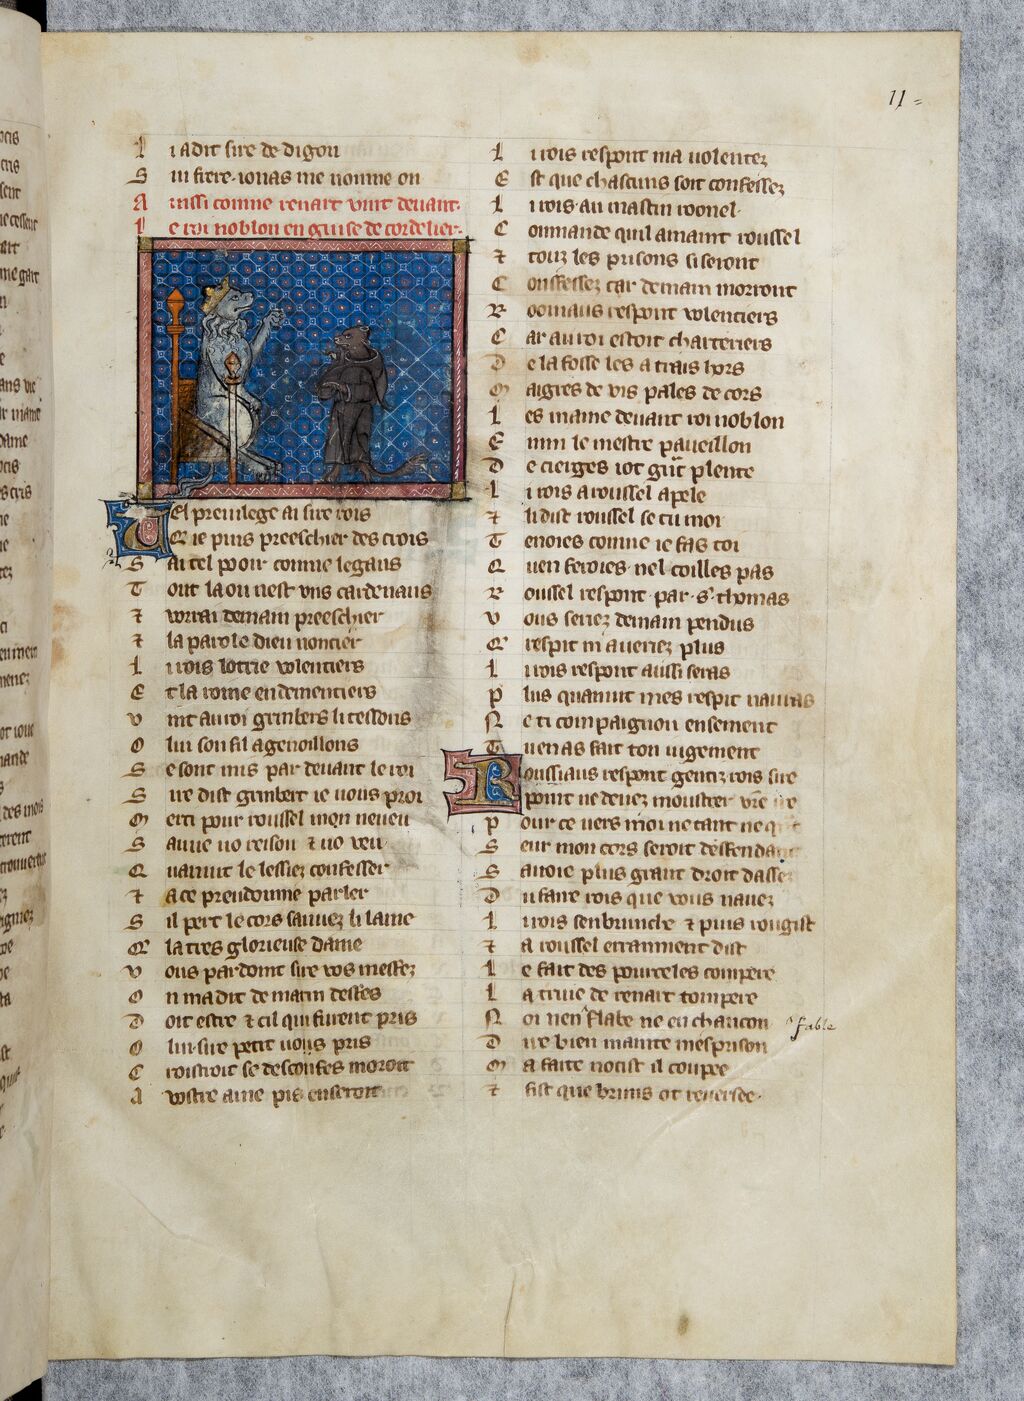 11
L i a dit sire de digon
S in frere ionas me nomme on
A inssi comme renart vint deuant
L e roi noblon en guise de cordelier.
T el preuilege ai sire rois
Q ie puis preeschier des crois
S ai tel pooir comme legaus
T out la ou nest vns cardenaus
⁊ vorrai demain preeschier
⁊ la parole dieu noncier
L i rois lotrie volentiers
E t la roine endementiers
V int au roi grinbers li tessons
O lui son fil agenoillons
S e sont mis par deuant le roi
S ire dist grinbert ie vous proi
M erci pour roussel mon neueu
S auue uo reison ⁊ uo veu
Q uannt le lessiez confesser
⁊ a ce preudomme parler
S il pert le cors sauuez li lame
Q la tres glorieuse dame
V ous pardoint sire vos meffez
O n ma dit de matin
D oit estre ⁊ cil qui furent pris
O lui sire petit uous pris
C roistroit se desconfes moroit
A vostre ame pis en seroit
L i rois respont ma uolentez
E st que chascuns soit confessez
L i rois au mastin roonel
C onmande quil amaint roussel
⁊ touz les prisons si seront
C onfessez car demain morront
R ooniaus respont volentiers
C ar au roi estoit chartriers
D e la fosse les a trais hors
M aigres de vis pales de cors
L es maine deuant roi noblon
E nmi le mestre paueillon
D e cierges iot gnt plente
L i rois a roussel apele
⁊ li dist roussel se tu moi
T enoies comme ie fas toi
Q uen feroies nel coilles pas
R oussel respont par s. thomas
V ous seriez demain pendus
Q respit ni aueriez plus
L i rois respont aussi seras
P lus quannt mes respit nauras
N e ti compaignon ensement
T u en as fait ton iugement
R oussiaus respont gentiz rois sire
point ne deuez moustrer vre ire
P our ce uers moi ne tant ne q
S eur mon cors seroit deffendan
S auoie plus grant droit dassez
D u faire rois que vous nauez
L i rois senbrunche ⁊ puis rougist
⁊ a roussel erranment dist
L e fait des pourceles compere
L a triue de renart ton pere
N oi nen flabe ne en chancon fable
D ire bien mainte mesprison
M a faite nocist il coupee
⁊ fist que bruns ot reuersee